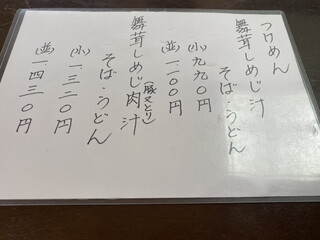 つけめん
舞茸しめじ汁
そば・うどん
(小)九九〇円
(並)一一〇〇円
舞茸しめじ肉汁(豚又とり)
そば・うどん
(小)一三二〇円
(並)一四三〇円